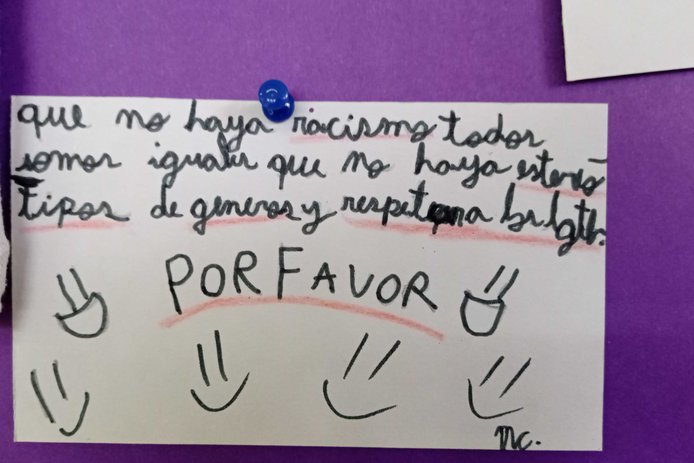 que no haya racismo todos
somos iguales que no haya estereo
tipos de generos y respeten a los lgtb.
POR FAVOR
nc.